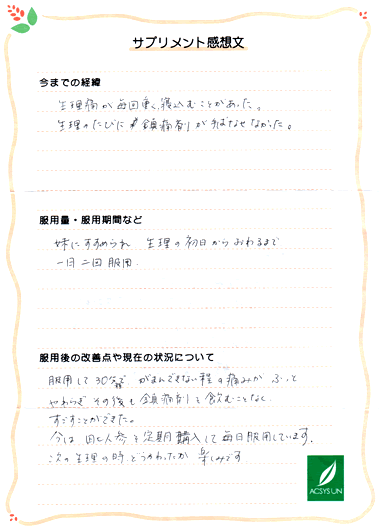 サプリメント感想文
今までの経緯
生理痛が毎回重く寝込むことがあった。
生理のたびに鎮痛剤が手ばなせなかった。
服用量・服用期間など
妹にすすめられ 生理の初日からおわるまで
一日二回服用.
服用後の改善点や現在の状況について
服用して30分で がまんできない程の痛みが ふっと
やわらぎ その後も 鎮痛剤を飲むことなく
すごすことができた。
今は 田七人参を定期購入して毎日服用しています.
次の生理の時、どうかわったか 楽しみです
ACSYSUN